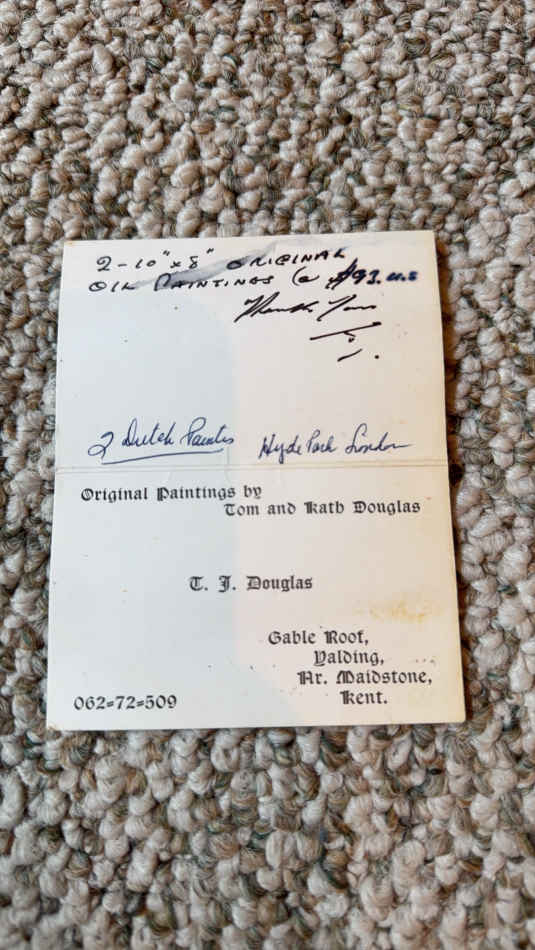 2-10"x8" ORIGINAL
OIL PAINTINGS @ $93. U.S
Thank You
T.J.
2 Dutch Painters Hyde Park London
Original Paintings by
Tom and Kath Douglas
T. J. Douglas
Gable Roof,
Yalding,
Nr. Maidstone,
Kent.
062=72=509